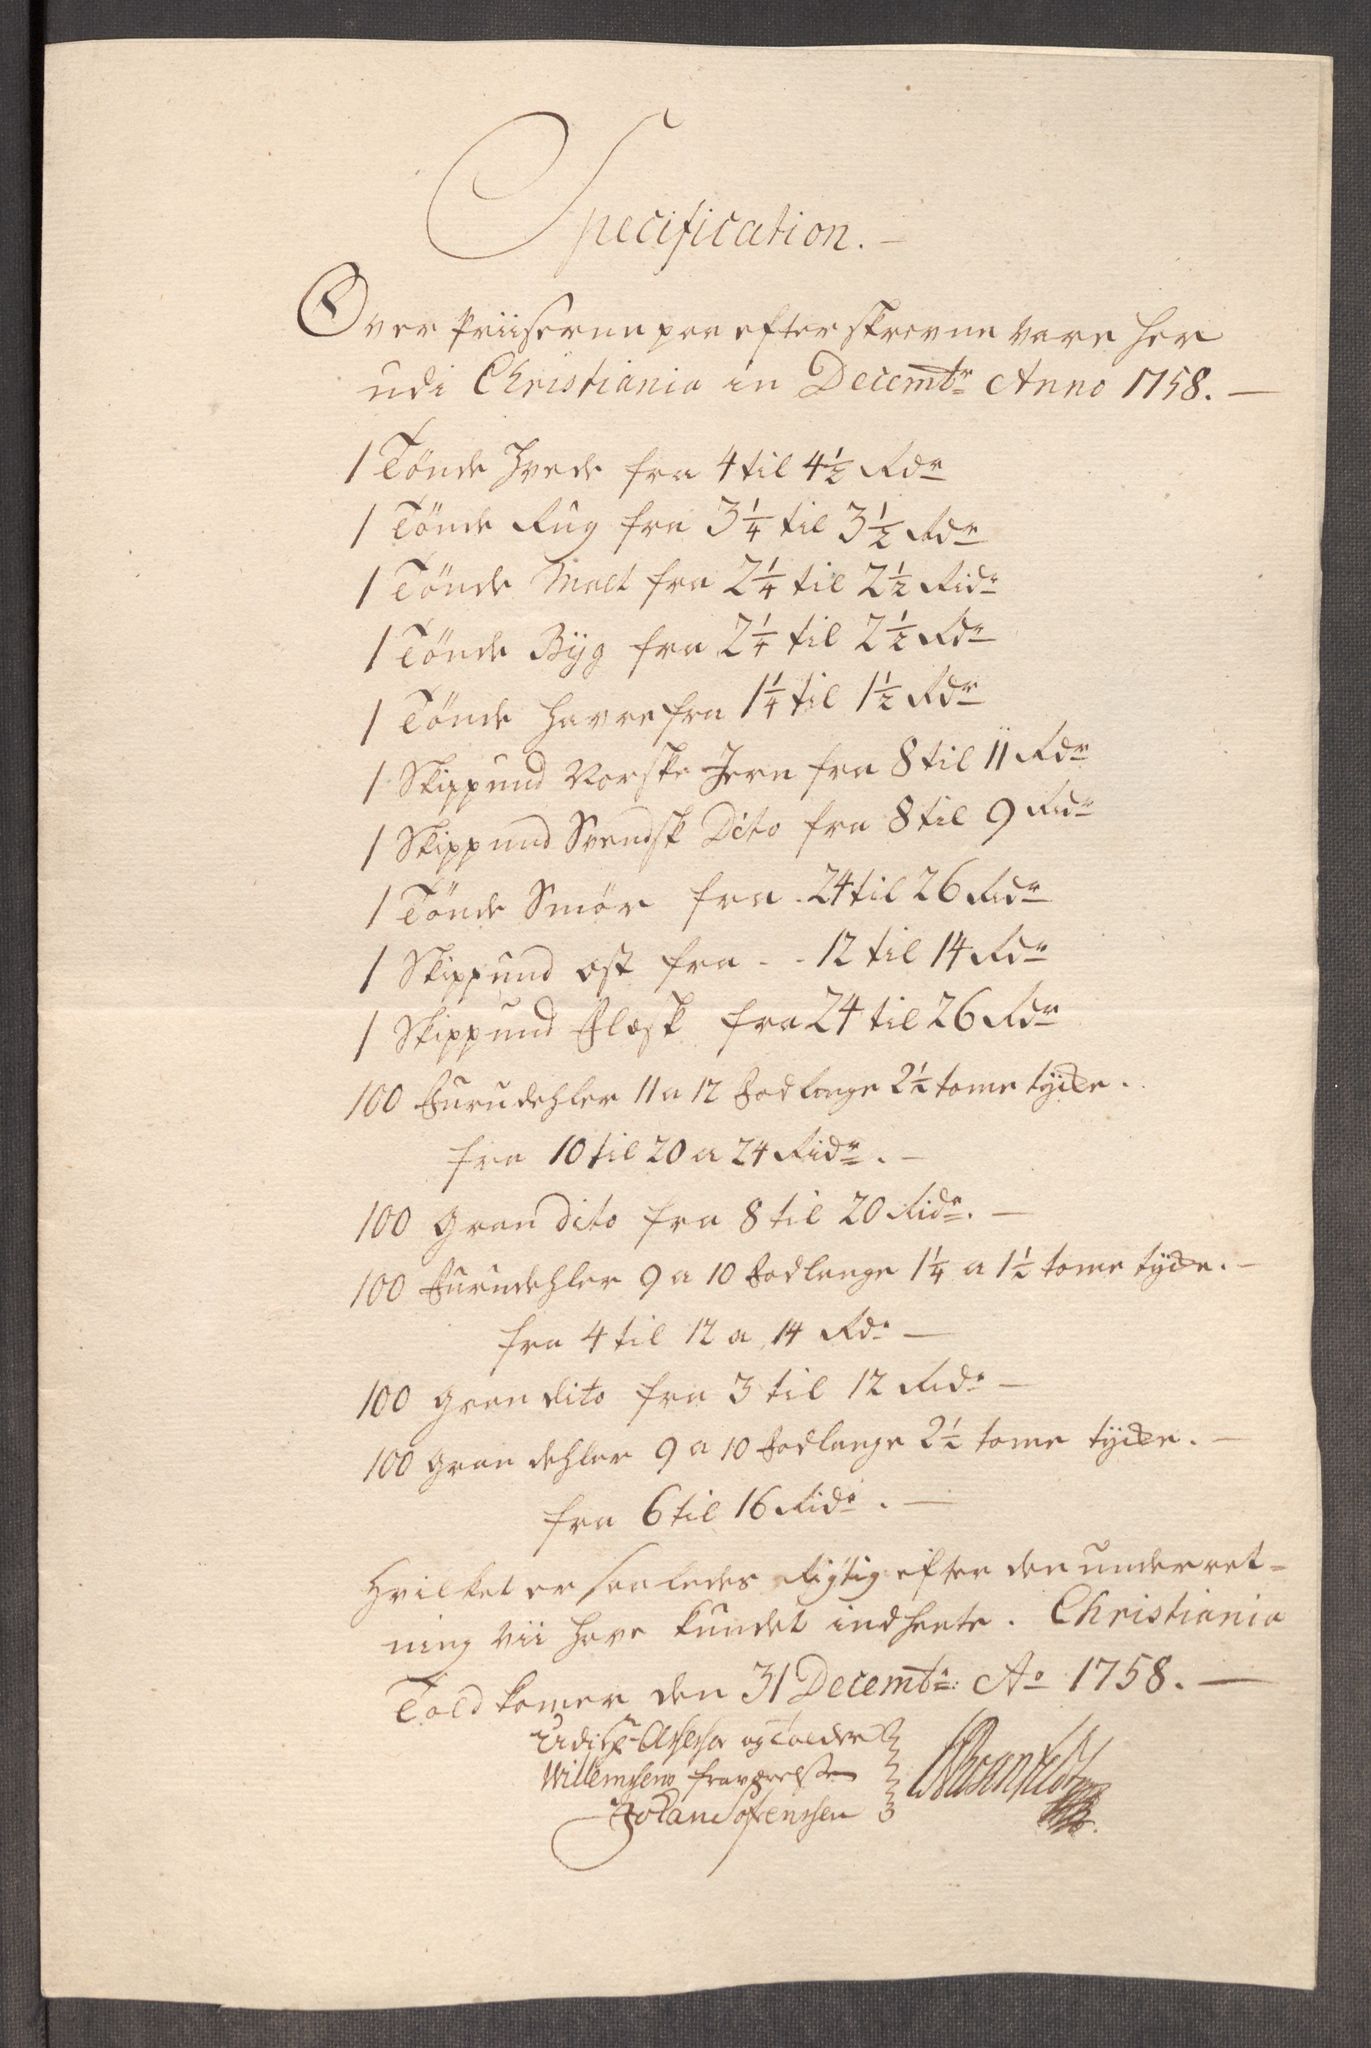 Specification.
Over Priiserne paa efterskrevne Vare her
udi Christiania in Decembr Anno 1758.
1 Tönde Hvede fra 4 til 4½ Rdr
1 Tönde Rug fra 3¼ til 3½ Rdr
1 Tönde Malt fra 2¼ til 2½ Rdr
1 Tönde Byg fra 2¼ til 2½ Rdr
1 Tönde Havre fra 1¼ til 1½ Rdr
1 Skippund Norske Jern fra 8 til 11 Rdr
1 Skippund Svendsk Dito fra 8 til 9 Rdr
1 Tönde Smör fra 24 til 26 Rdr
1 Skippund ost fra - - 12 til 14 Rdr
1 Skippund Flesk fra 24 til 26 Rdr
100 Furudehler 11 a 12 Fod lange 2½ tome tyke.
fra 10 til 20 a 24 Rdr. -
100 Gran dito fra 8 til 20 Rdr. -
100 Furudehler 9 a 10 Fod lange 1¼ a 1½ tome tyke. -
fra 4 til 12 a 14 Rdr -
100 Gran dito fra 3 til 12 Rdr -
100 Gran dehler 9 a 10 Fod lange 2½ tome tyke. -
fra 6 til 16 Rdr. -
Hvilket er saaledes Rigtig efter den underret-
ning vii have kundet indhente. Christiania
Told kamer den 31 Decembr: Ao 1758. -
Udi Hr Assessor og Tolder
Willemsens fraværelse